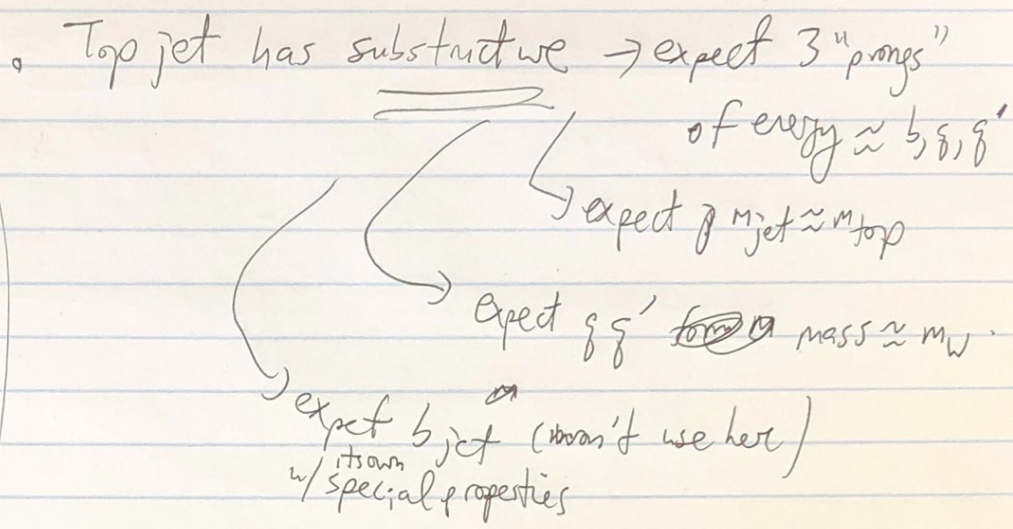 • Top jet has substructure → expect 3 "prongs"
of energy ≈ b, q, q'
expect m_jet ≈ m_top
expect q q' mass ≈ m_W.
expect b jet (won't use here)
w/ its own special properties